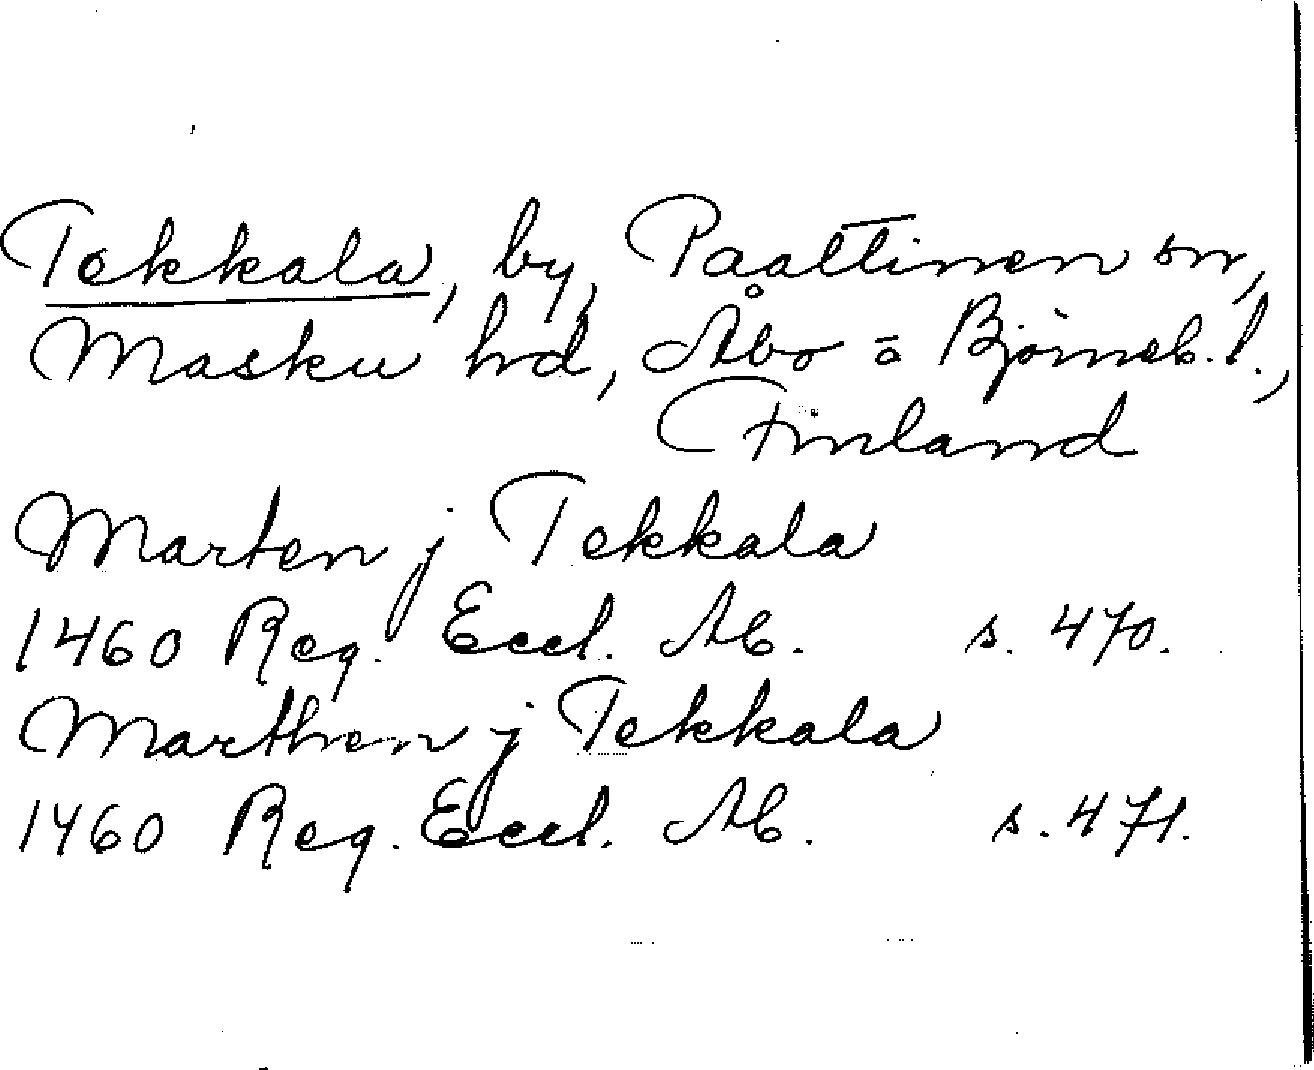 Tekkala, by, Paattinen sn,
Masku hd, Åbo o Björneb. l.,
Finland
Marten j Tekkala
1460 Reg. Eccl. Ab. s. 470.
Marthen j Tekkala
1460 Reg. Eccl. Ab. s. 471.